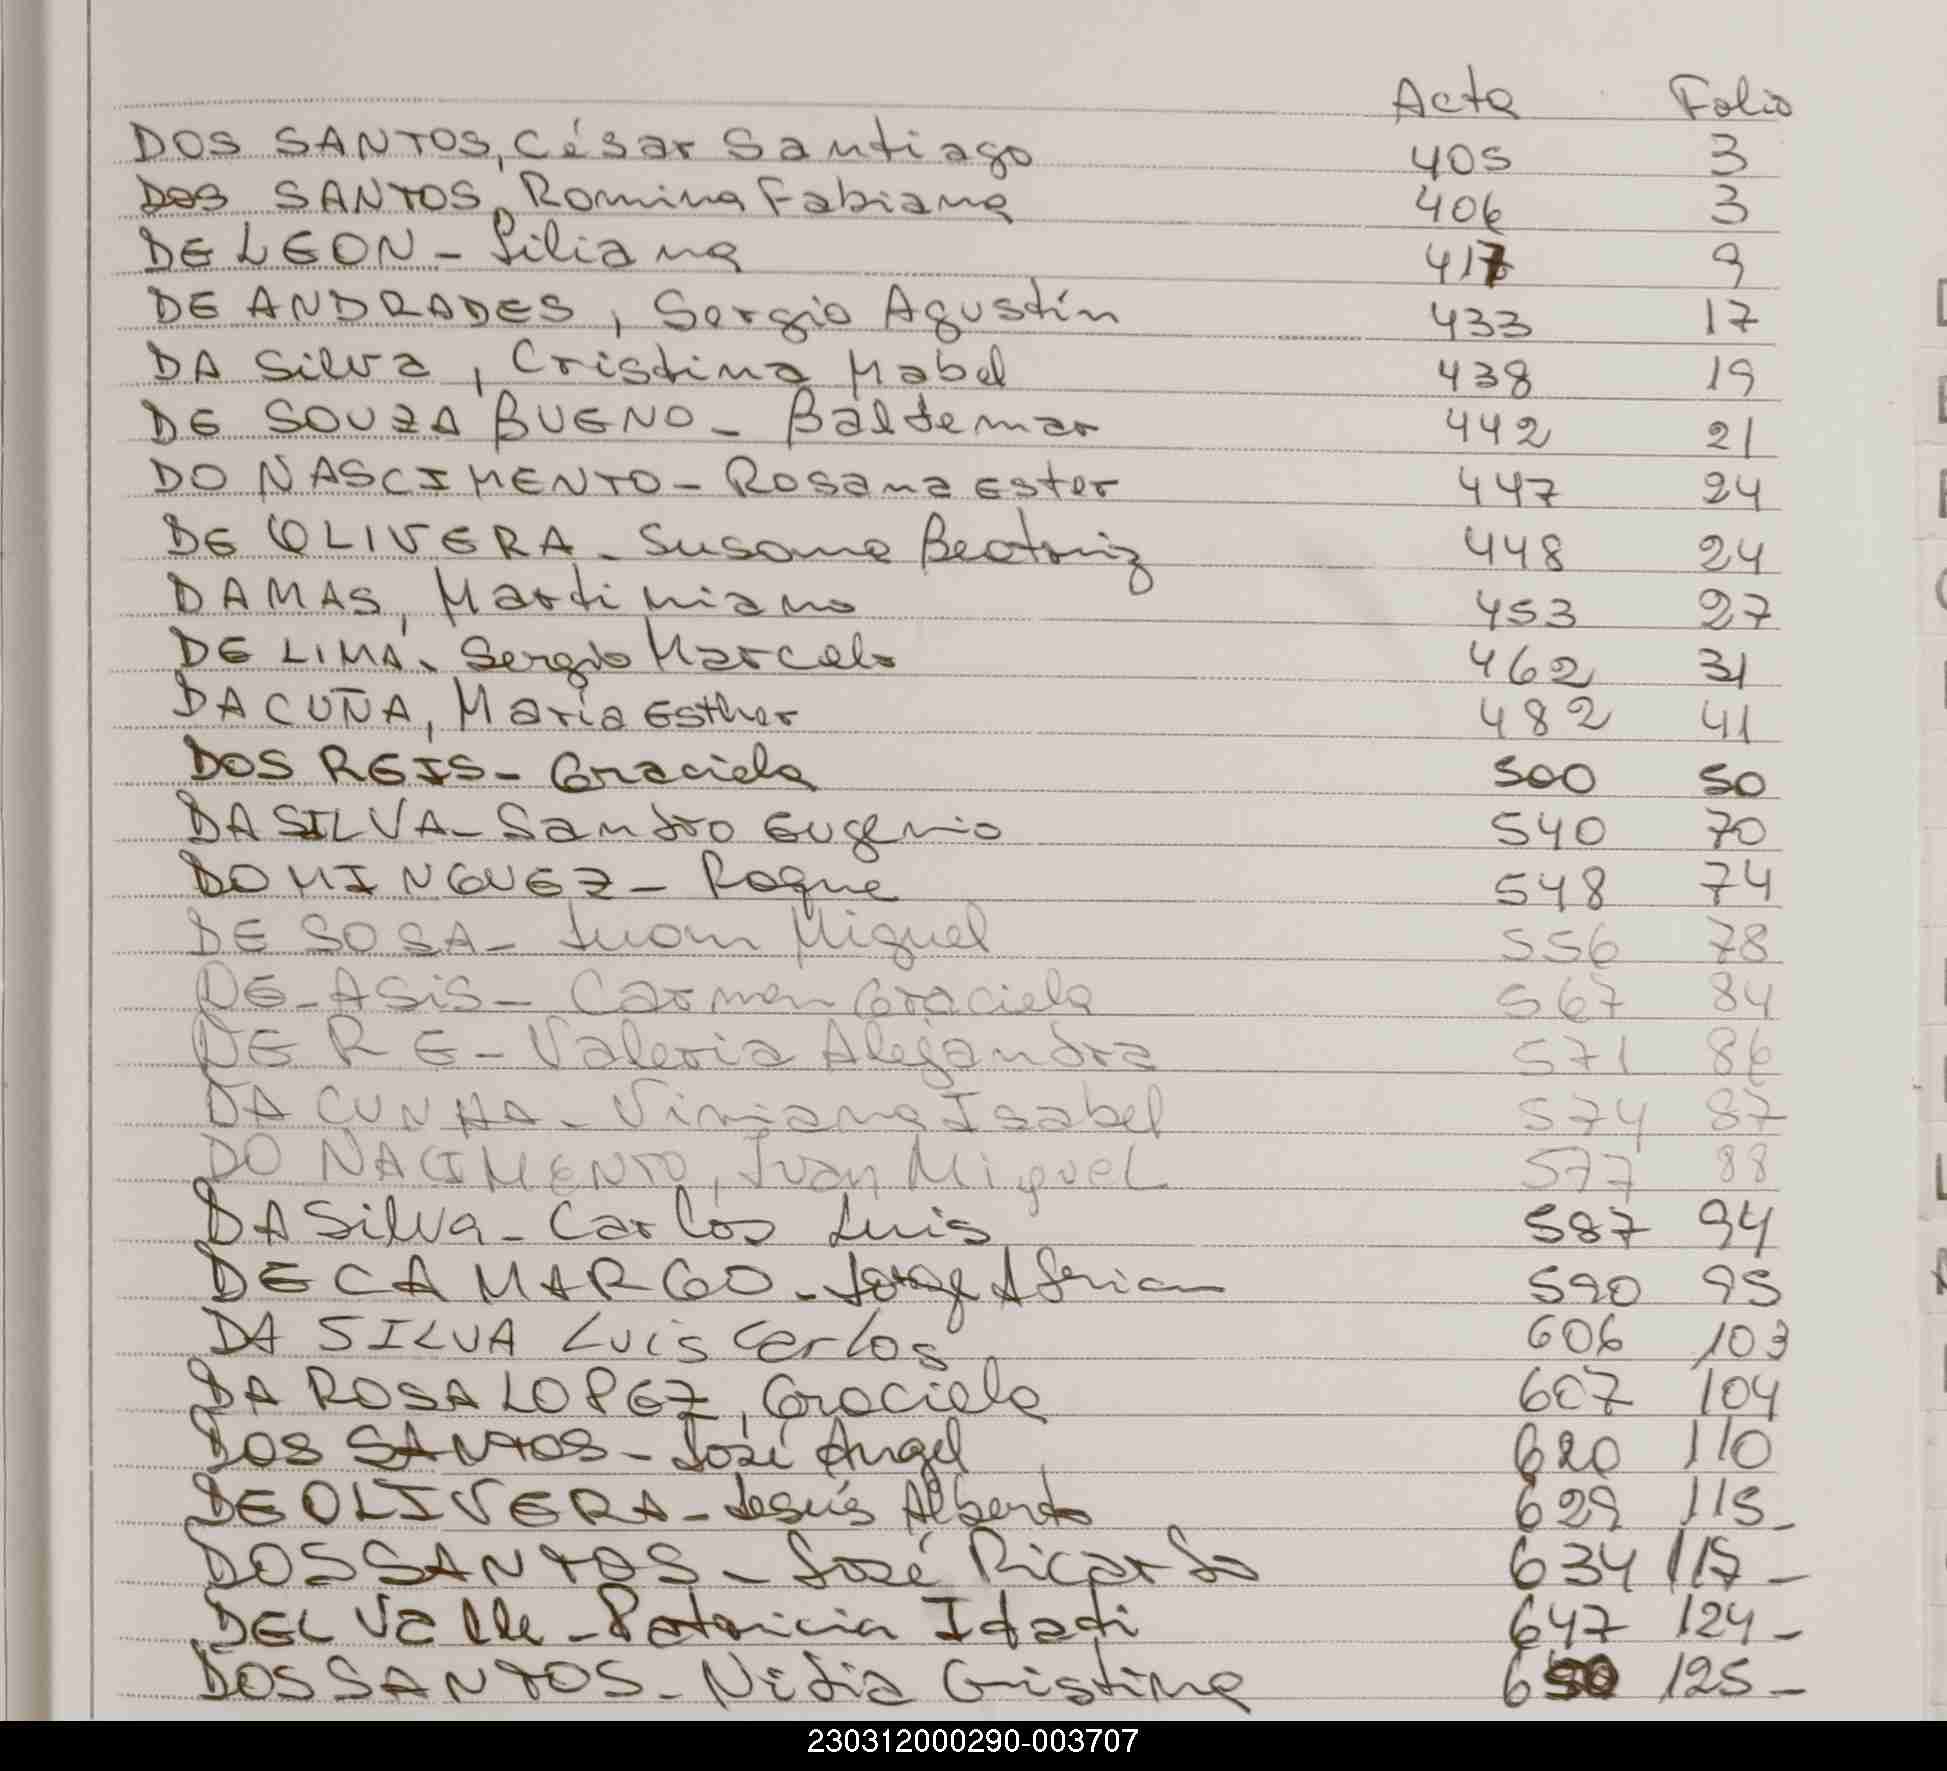 Acta Folio
DOS SANTOS, César Santiago 405 3
DOS SANTOS, Romina Fabiana 406 3
DE LEON - Liliana 417 9
DE ANDRADES, Sergio Agustín 433 17
DA Silva, Cristina Mabel 438 19
DE SOUZA BUENO - Baldemar 442 21
DO NASCIMENTO - Rosana Ester 447 24
DE OLIVERA - Susana Beatriz 448 24
DAMAS, Martiniano 453 27
DE LIMA, Sergio Marcelo 462 31
DA CUÑA, María Esther 482 41
DOS REIS - Graciela 500 50
DA SILVA - Sandro Eugenio 540 70
DOMINGUEZ - Roque 548 74
DE SOSA - Juan Miguel 556 78
DE - ASiS - Carmen Graciela 567 84
DE RE - Valeria Alejandra 571 86
DA CUNHA - Viviana Isabel 574 87
DO NACIMENTO, Juan Miguel 577 88
DA Silva - Carlos Luis 587 94
DE CAMARGO - Jorge Adrian 590 95
DA SILVA Luis Carlos 606 103
DA ROSA LOPEZ, Graciela 607 104
DOS SANTOS - José Angel 620 110
DE OLIVERA - Jesús Alberto 629 115 -
DOS SANTOS - José Ricardo 634 117 -
DEL Valle - Patricia Itatí 647 124 -
DOS SANTOS - Nidia Cristina 650 125 -
230312000290-003707